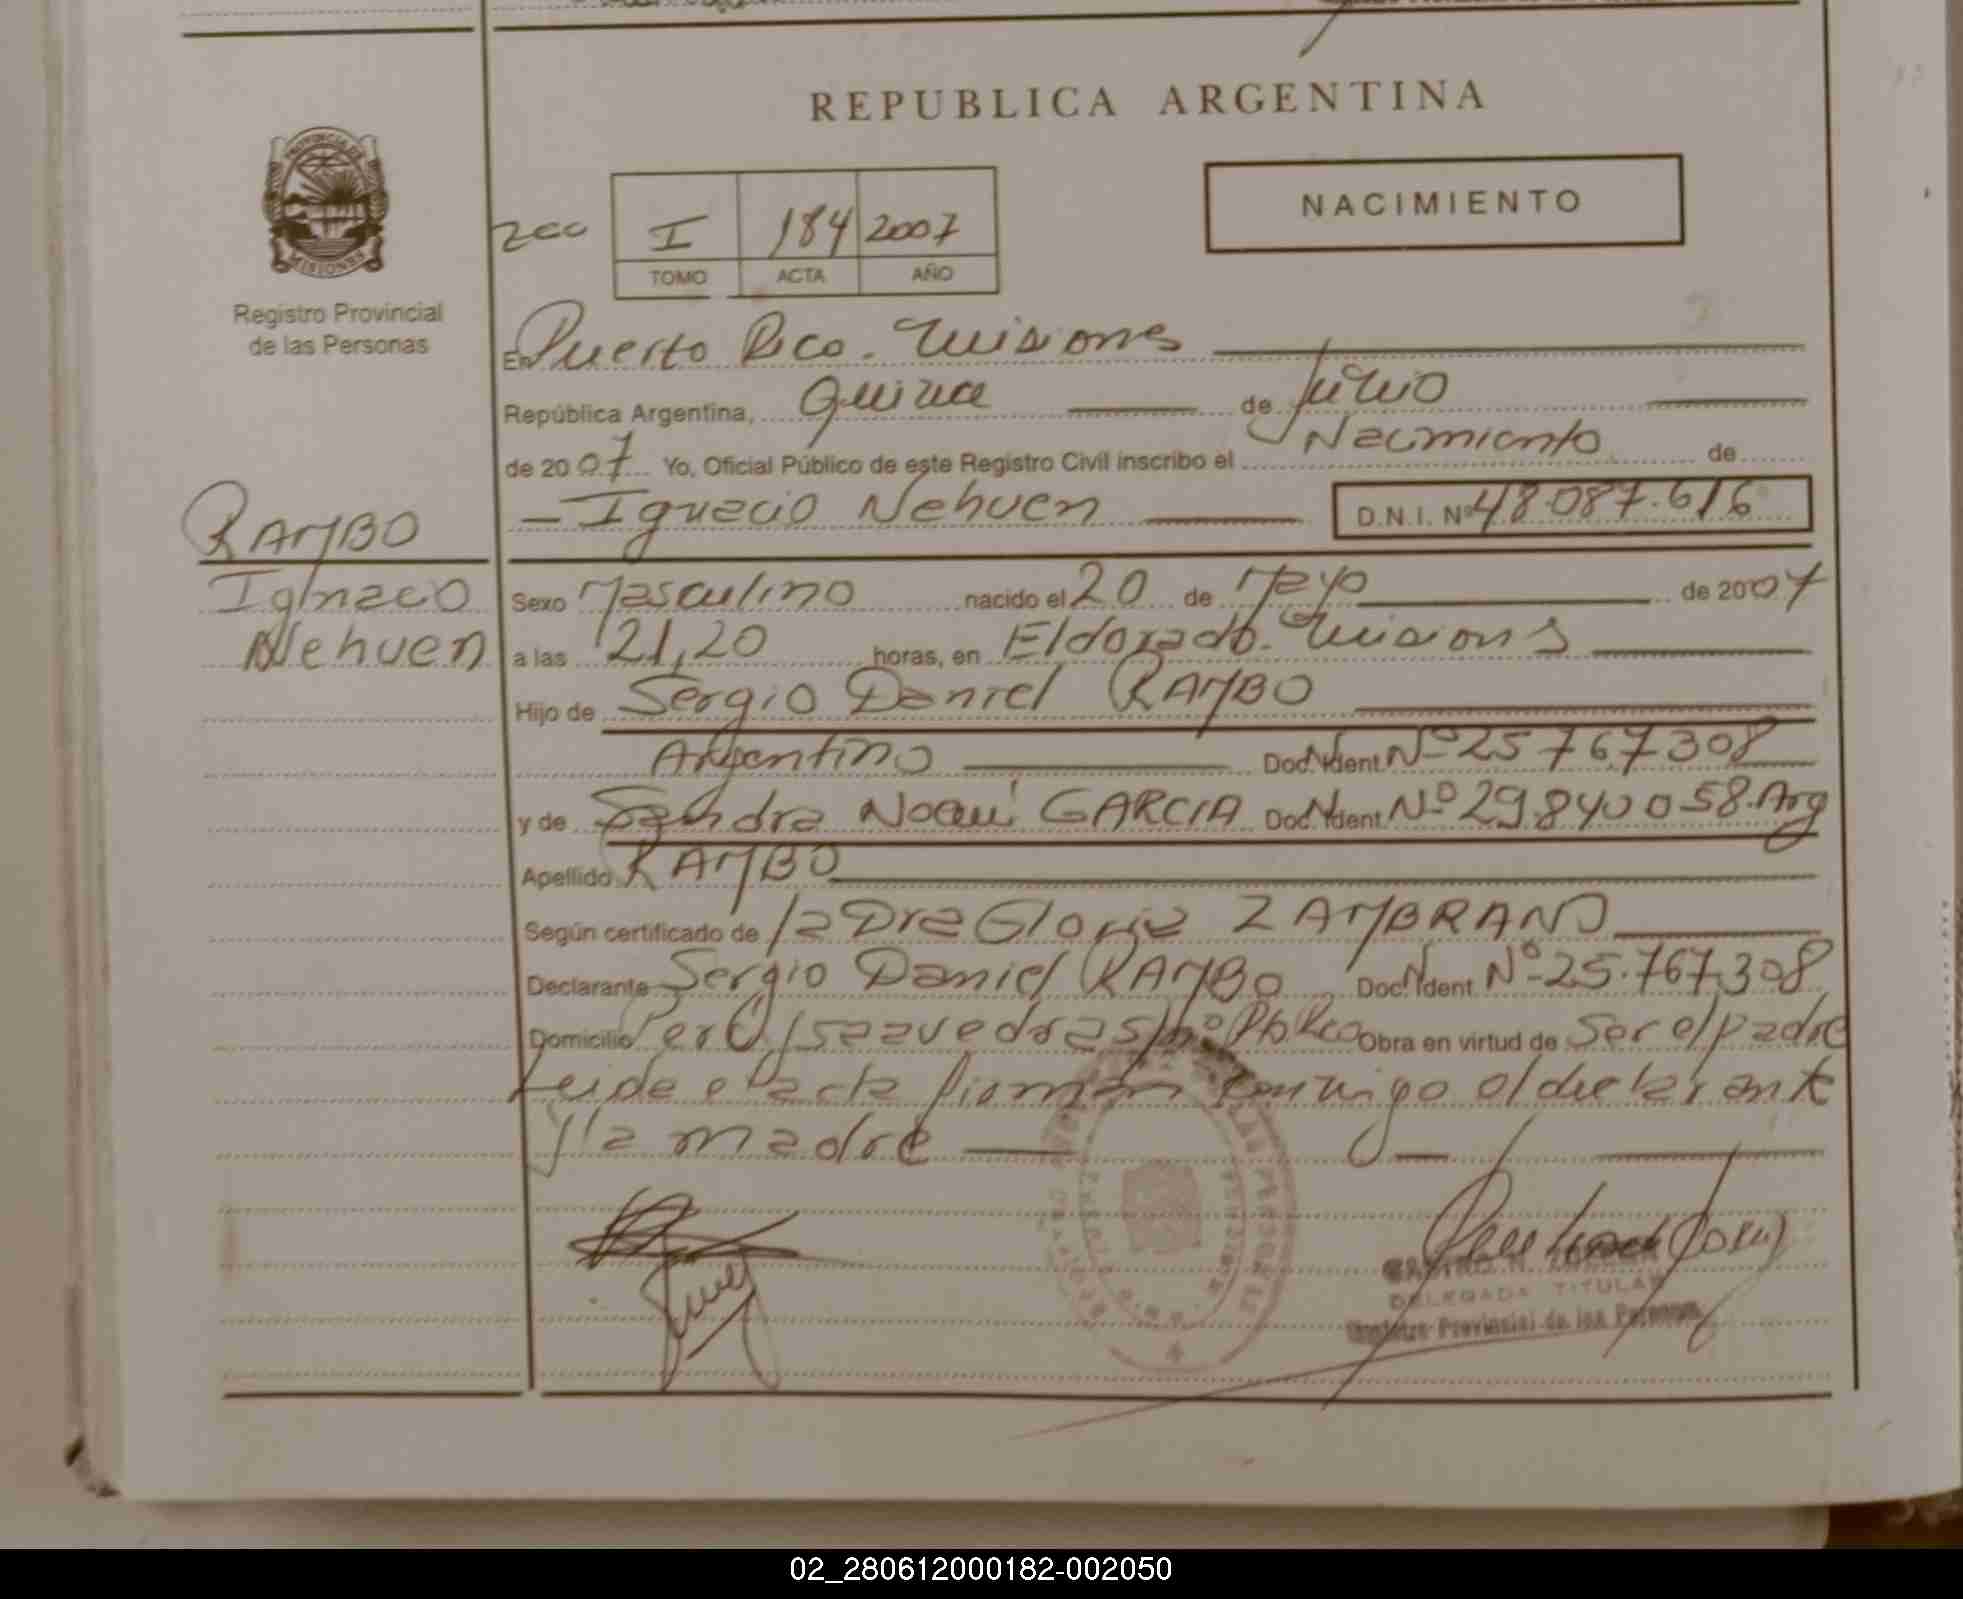 REPUBLICA ARGENTINA
PROVINCIA DE
MISIONES
Registro Provincial
de las Personas
NACIMIENTO
200
I 184 2007
TOMO ACTA AÑO
En Puerto Rico. Misiones
República Argentina, Quince de Julio
de 2007 Yo, Oficial Público de este Registro Civil inscribo el Nacimiento de
Ignacio Nehuen D.N.I. Nº 48.087.616
RAMBO
Ignacio
Nehuen
Sexo Masculino nacido el 20 de Mayo de 2007
a las 21,20 horas, en Eldorado. Misiones
Hijo de Sergio Daniel RAMBO
Argentino Doc. Ident. Nº 25 767 308
y de Sandra Noemi GARCIA Doc. Ident. Nº 29.840 058. Arg
Apellido RAMBO
Según certificado de la Dra Gloria ZAMBRANO
Declarante Sergio Daniel RAMBO Doc. Ident. Nº 25.767.308
Domicilio Perú y Saavedra s/nº Pto Rco Obra en virtud de Ser el padre
Leida el acta firman conmigo el declarante
y la madre
DELEGADA TITULAR
Registro Provincial de las Personas
02_280612000182-002050